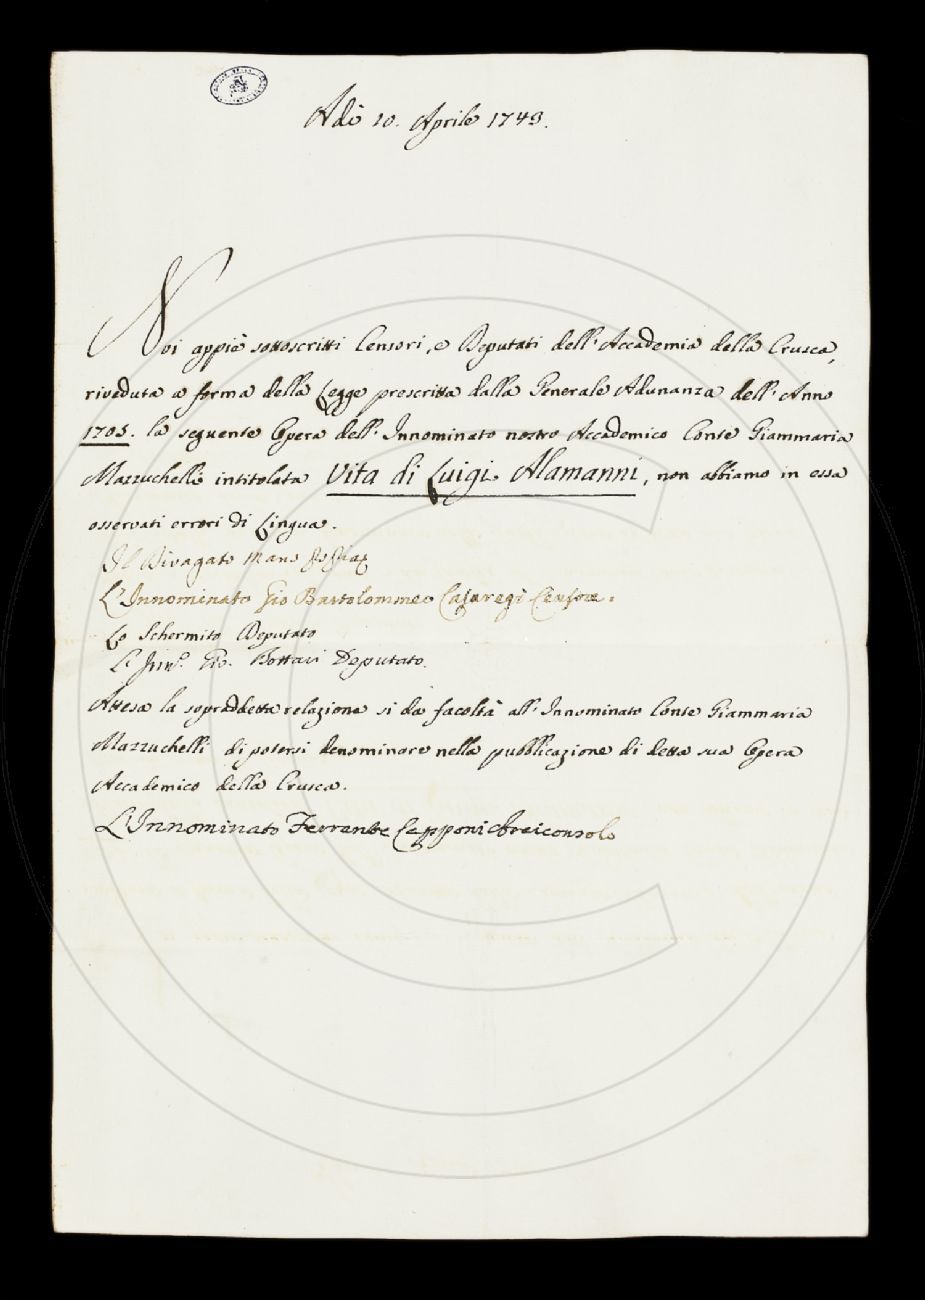 Adì 10. Aprile 1743.
Noi appiè sottoscritti Censori, e Deputati dell'Accademia della Crusca,
riveduta a forma della Legge prescritta dalla Generale Adunanza dell'Anno
1705. la seguente Opera dell'Innominato nostro Accademico Conte Giammaria
Mazzuchelli intitolata Vita di Luigi Alamanni, non abbiamo in essa
osservati errori di Lingua.
Il Divagato
L'Innominato Gio Bartolommeo Casaregi Censore.
Lo Schermito Deputato
L'Inn.º Gio. Bottari Deputato.
Attesa la sopraddetta relazione si da facoltà all'Innominato Conte Giammaria
Mazzuchelli di potersi denominare nella pubblicazione di detta sua Opera
Accademico della Crusca.
L'Innominato Ferrante Capponi Arciconsolo